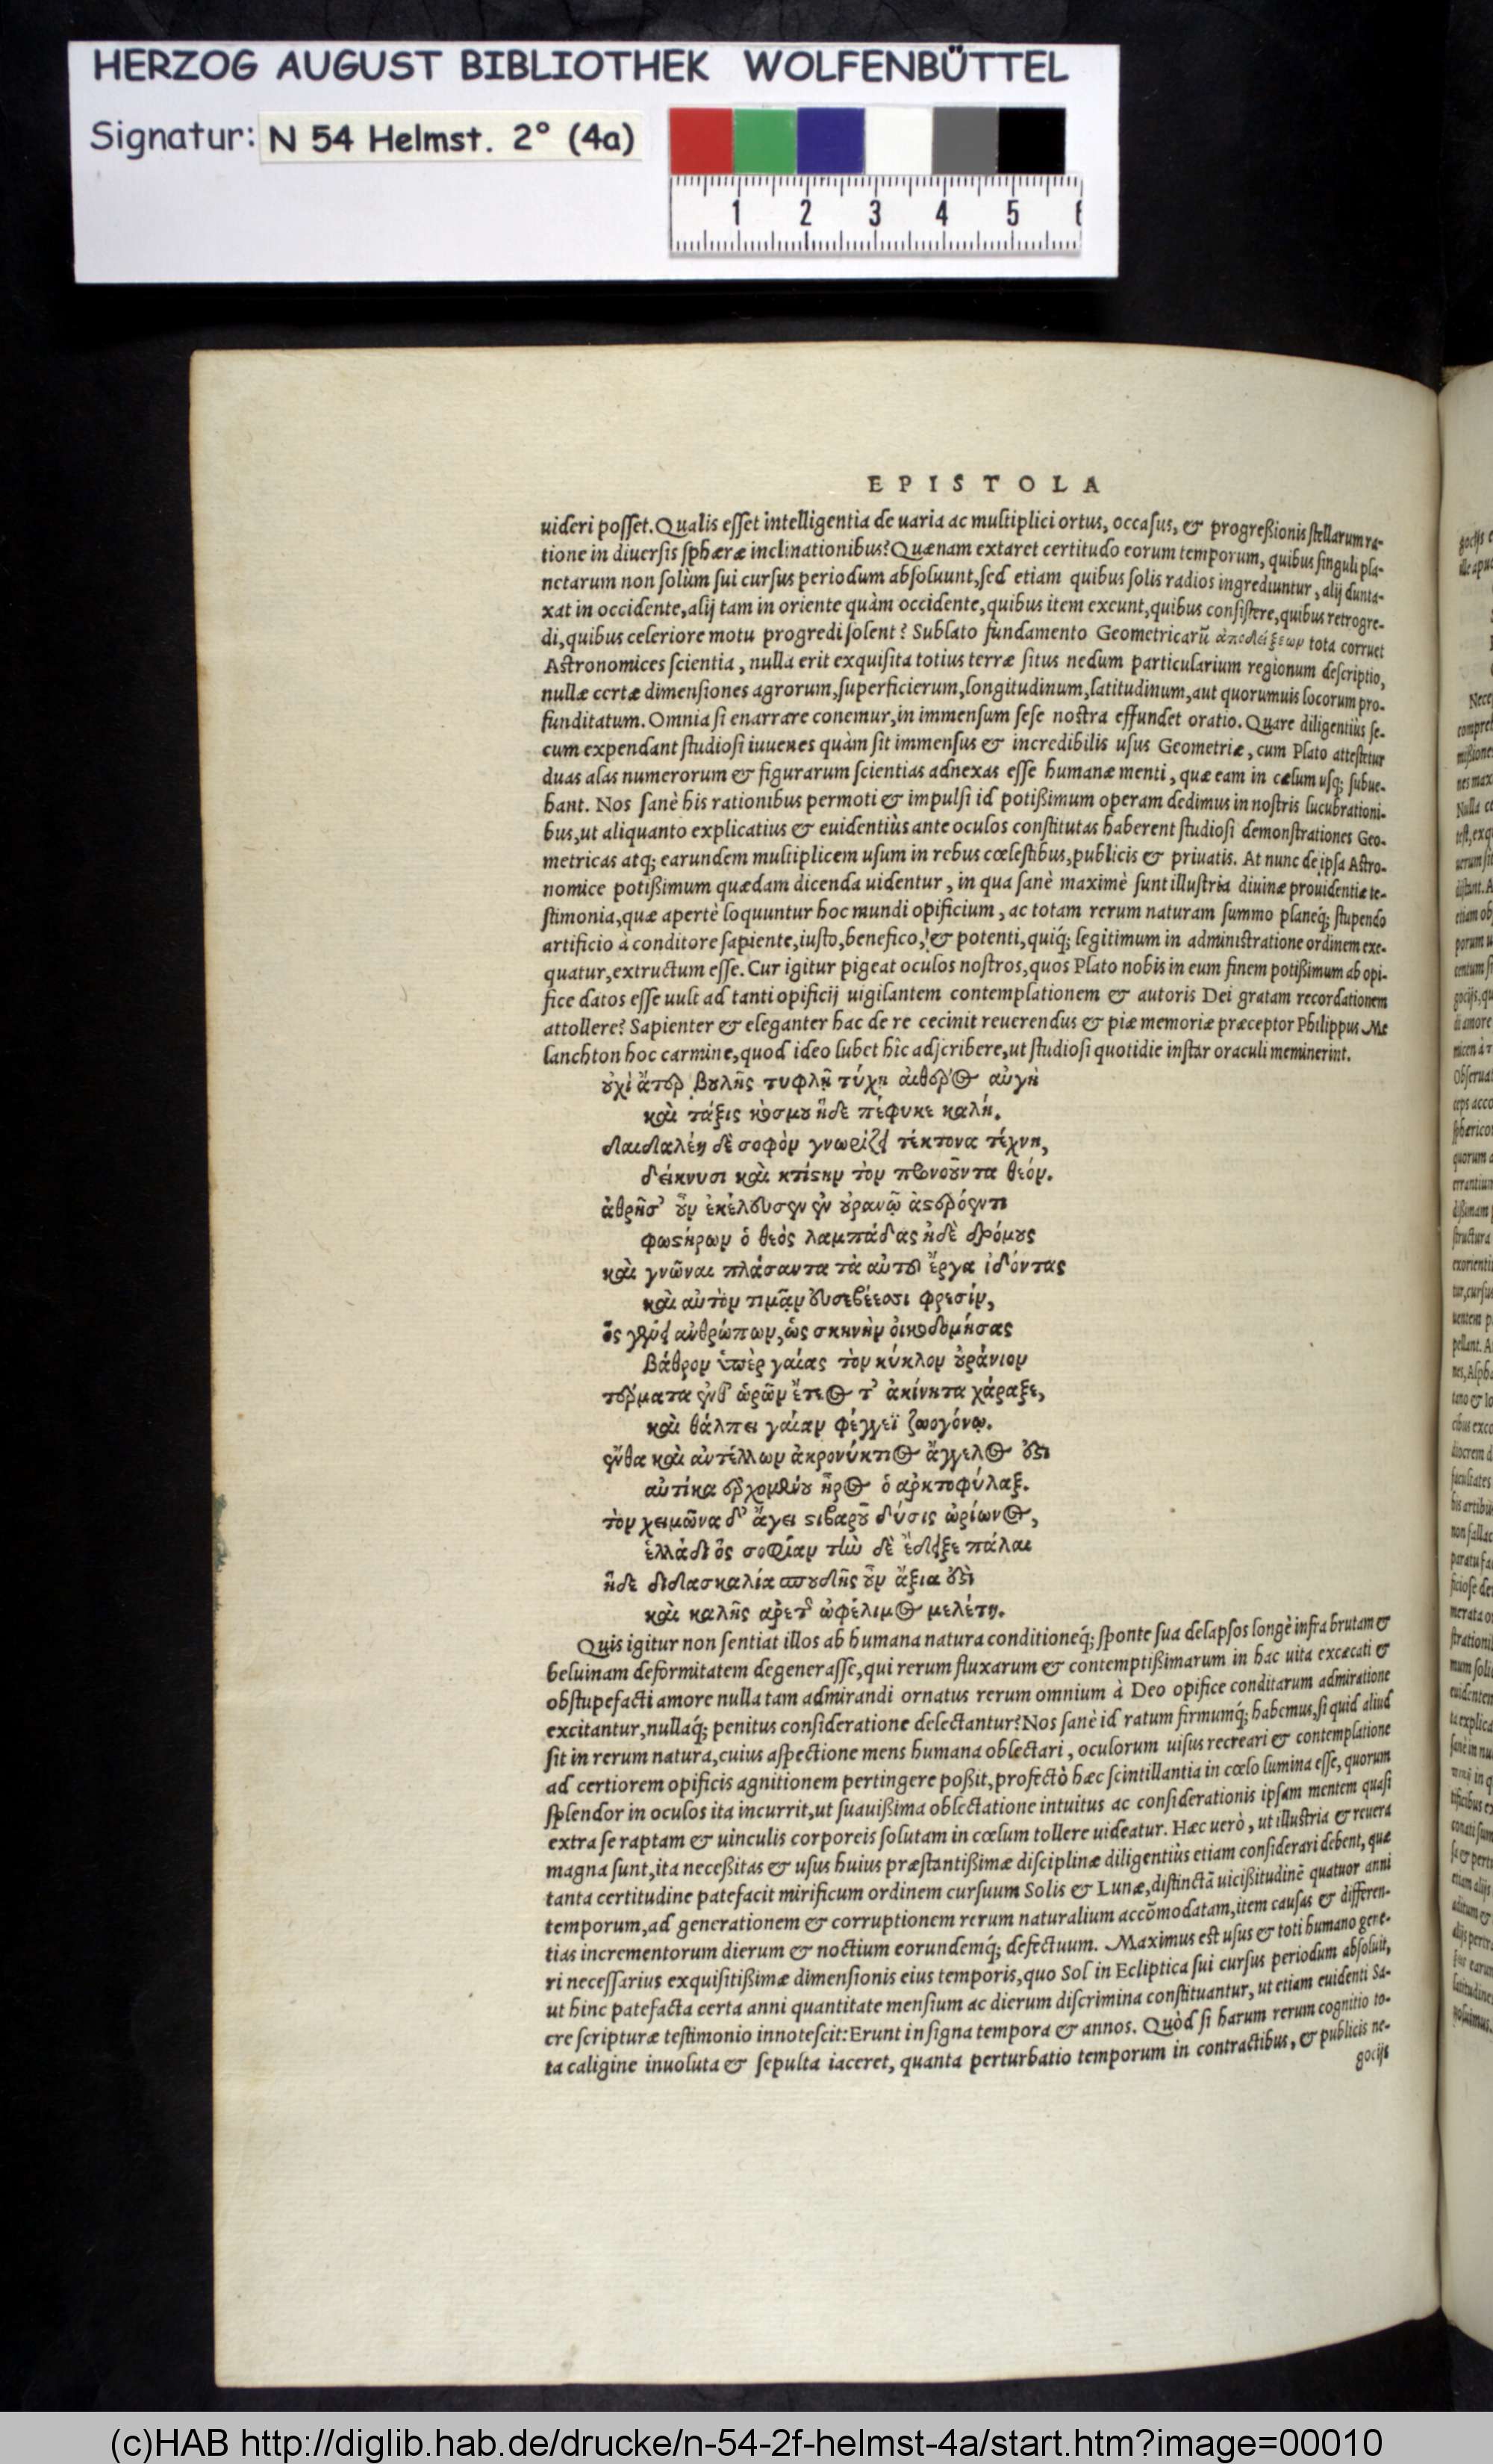 HERZOG AUGUST BIBLIOTHEK WOLFENBÜTTEL
Signatur: N 54 Helmst. 2° (4a)
1 2 3 4 5
EPISTOLA
uideri posset. Qualis esset intelligentia de uaria ac multiplici ortus, occasus, & progreßionis stellarum ra-
tione in diuersis sphæræ inclinationibus? Quænam extaret certitudo eorum temporum, quibus singuli pla-
netarum non solùm sui cursus periodum absoluunt, sed etiam quibus solis radios ingrediuntur, alij dunta-
xat in occidente, alij tam in oriente quàm occidente, quibus item exeunt, quibus consistere, quibus retrogre-
di, quibus celeriore motu progredi solent? Sublato fundamento Geometricarũ ἀποδείξεωρ tota corruet
Astronomices scientia, nulla erit exquisita totius terræ situs nedum particularium regionum descriptio,
nullæ certæ dimensiones agrorum, superficierum, longitudinum, latitudinum, aut quorumuis locorum pro-
funditatum. Omnia si enarrare conemur, in immensum sese nostra effundet oratio. Quare diligentiùs se-
cum expendant studiosi iuuenes quàm sit immensus & incredibilis usus Geometriæ, cum Plato attestetur
duas alas numerorum & figurarum scientias adnexas esse humanæ menti, quæ eam in cælum usq; subue-
hant. Nos sanè his rationibus permoti & impulsi id potißimum operam dedimus in nostris lucubrationi-
bus, ut aliquanto explicatius & euidentiùs ante oculos constitutas haberent studiosi demonstrationes Geo-
metricas atq; earundem multiplicem usum in rebus cœlestibus, publicis & priuatis. At nunc de ipsa Astro-
nomice potißimum quædam dicenda uidentur, in qua sanè maximè sunt illustria diuinæ prouidentiæ te-
stimonia, quæ apertè loquuntur hoc mundi opificium, ac totam rerum naturam summo planeq́; stupendo
artificio à conditore sapiente, iusto, benefico, & potenti, quiq́; legitimum in administratione ordinem exe-
quatur, extructum esse. Cur igitur pigeat oculos nostros, quos Plato nobis in eum finem potißimum ab opi-
fice datos esse uult ad tanti opificij uigilantem contemplationem & autoris Dei gratam recordationem
attollere? Sapienter & eleganter hac de re cecinit reuerendus & piæ memoriæ præceptor Philippus Me
lanchton hoc carmine, quod ideo lubet hîc adscribere, ut studiosi quotidie instar oraculi meminerint.
οὐχὶ ἄτερ βουλῆς τυφλῇ τύχῃ αἰθέρος αὐγὴ
καὶ τάξις κόσμου ἥδε πέφυκε καλή.
δαιδαλέη δὲ σοφὸν γνωρίζει τέκτονα τέχνη,
δείκνυσι καὶ κτίστην τὸν πονοῦντα θεόν.
ἀθρῆσ' οὖν ἐκέλευσεν ἐν οὐρανῷ ἀστερόεντι
φωστήρων ὁ θεὸς λαμπάδας ἠδὲ δρόμους
καὶ γνῶναι πλάσαντα τὰ αὐτοῦ ἔργα ἰδόντας
καὶ αὐτὸν τιμᾷν εὐσεβέεσσι φρεσίν,
ὃς γενεῇ ἀνθρώπων, ὡς σκηνὴν οἰκοδομήσας
βάθρον ὑπὲρ γαίας τὸν κύκλον οὐράνιον
τέρματα ἔνθ' ὡρῶν ἔτεος τ' ἀκίνητα χάραξε,
καὶ θάλπει γαίαν φέγγεϊ ζωογόνῳ.
ἔνθα καὶ ἀντέλλων ἀκρονύκτιος ἄγγελος ἐστι
αὐτίκα ἐρχομένου ἦρος ὁ ἀρκτοφύλαξ.
τὸν χειμῶνα δ' ἄγει στιβαροῦ δύσις ὠρίωνος,
ἑλλάδι ὃς σοφίαν τὴν δὲ ἔδειξε πάλαι
ἥδε διδασκαλία σπουδῆς οὖν ἄξια ἐστὶ
καὶ καλῆς ἀρετῆς ὠφέλιμος μελέτη.
Quis igitur non sentiat illos ab humana natura conditioneq́; sponte sua delapsos longè infra brutam &
beluinam deformitatem degenerasse, qui rerum fluxarum & contemptißimarum in hac uita excæcati &
obstupefacti amore nulla tam admirandi ornatus rerum omnium à Deo opifice conditarum admiratione
excitantur, nullaq́; penitus consideratione delectantur? Nos sanè id ratum firmumq́; habemus, si quid aliud
sit in rerum natura, cuius aspectione mens humana oblectari, oculorum uisus recreari & contemplatione
ad certiorem opificis agnitionem pertingere poßit, profectò hæc scintillantia in cœlo lumina esse, quorum
splendor in oculos ita incurrit, ut suauißima oblectatione intuitus ac considerationis ipsam mentem quasi
extra se raptam & uinculis corporeis solutam in cœlum tollere uideatur. Hæc uerò, ut illustria & reuera
magna sunt, ita neceßitas & usus huius præstantißimæ disciplinæ diligentiùs etiam considerari debent, quæ
tanta certitudine patefacit mirificum ordinem cursuum Solis & Lunæ, distinctã uicißitudinẽ quatuor anni
temporum, ad generationem & corruptionem rerum naturalium accõmodatam, item causas & differen-
tias incrementorum dierum & noctium eorundemq́; defectuum. Maximus est usus & toti humano gene-
ri necessarius exquisitißimæ dimensionis eius temporis, quo Sol in Ecliptica sui cursus periodum absoluit,
ut hinc patefacta certa anni quantitate mensium ac dierum discrimina constituantur, ut etiam euidenti Sa-
cre scripturæ testimonio innotescit: Erunt in signa tempora & annos. Quòd si harum rerum cognitio to-
ta caligine inuoluta & sepulta iaceret, quanta perturbatio temporum in contractibus, & publicis ne-
gocijs
(c)HAB http://diglib.hab.de/drucke/n-54-2f-helmst-4a/start.htm?image=00010